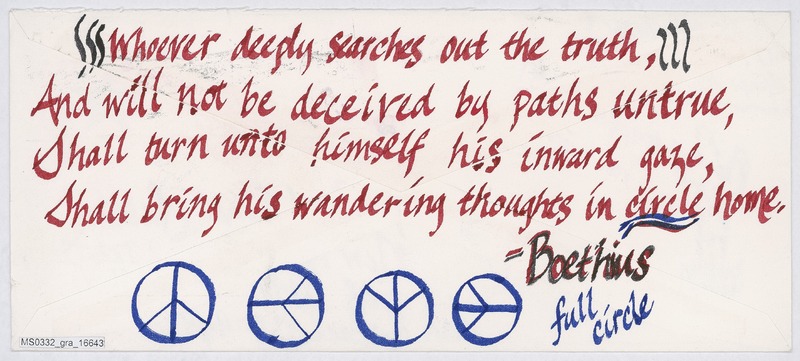 Whoever deeply searches out the truth,
And will not be deceived by paths untrue,
Shall turn unto himself his inward gaze,
Shall bring his wandering thoughts in circle home.
=Boethius
full
circle
MS0332_gra_16643